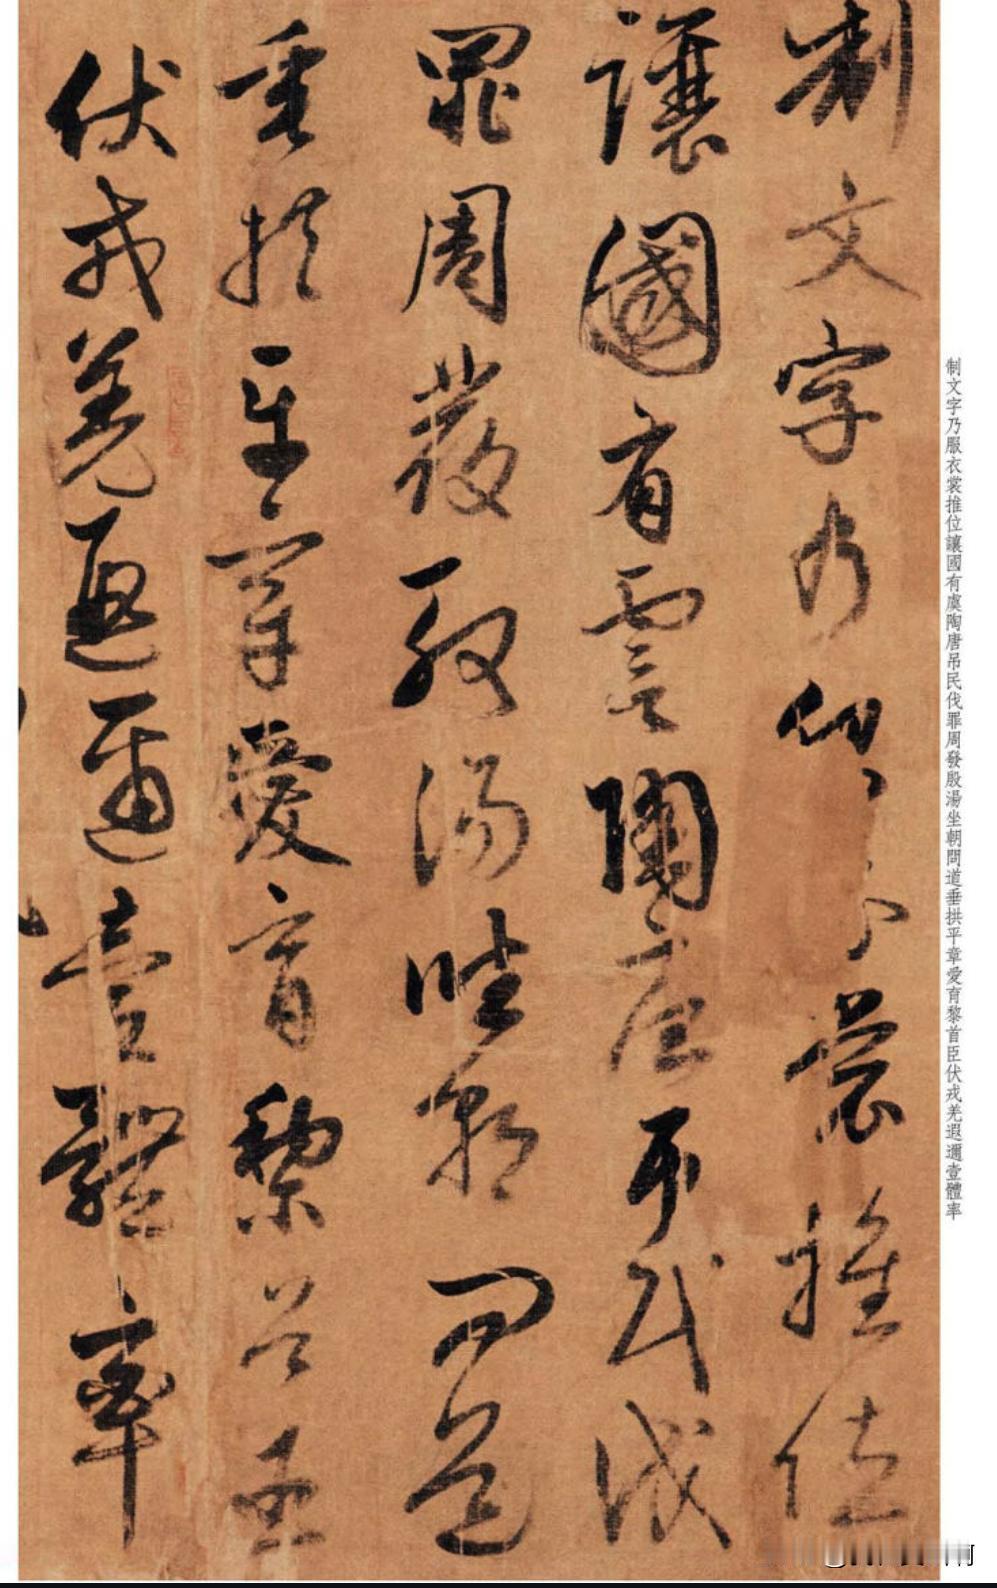 制文字乃服衣裳推位
讓國有虞陶唐吊民伐
罪周發殷湯坐朝問道
垂拱平章愛育黎首臣
伏戎羌遐邇壹體率
制文字乃服衣裳推位讓國有虞陶唐吊民伐罪周發殷湯坐朝問道垂拱平章愛育黎首臣伏戎羌遐邇壹體率